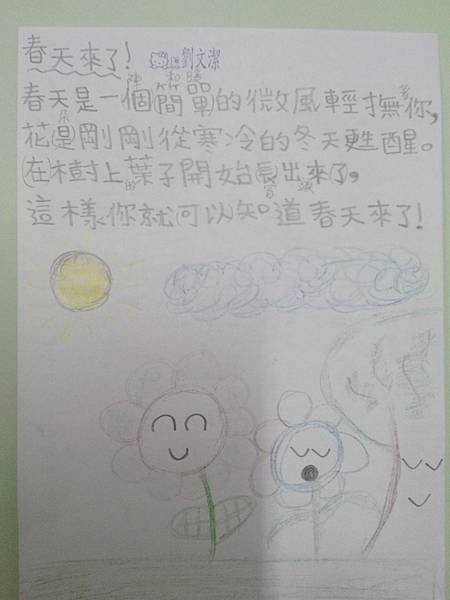 春天來了! 劉文潔
春天是一個簡單的微風輕撫你,
花是剛剛從寒冷的冬天甦醒。
在樹上葉子開始長出來了,
這樣你就可以知道春天來了!